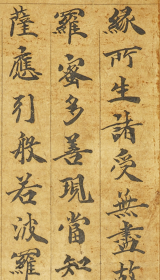 緣所生諸受無盡故
羅蜜多善現當知
薩應引般若波羅